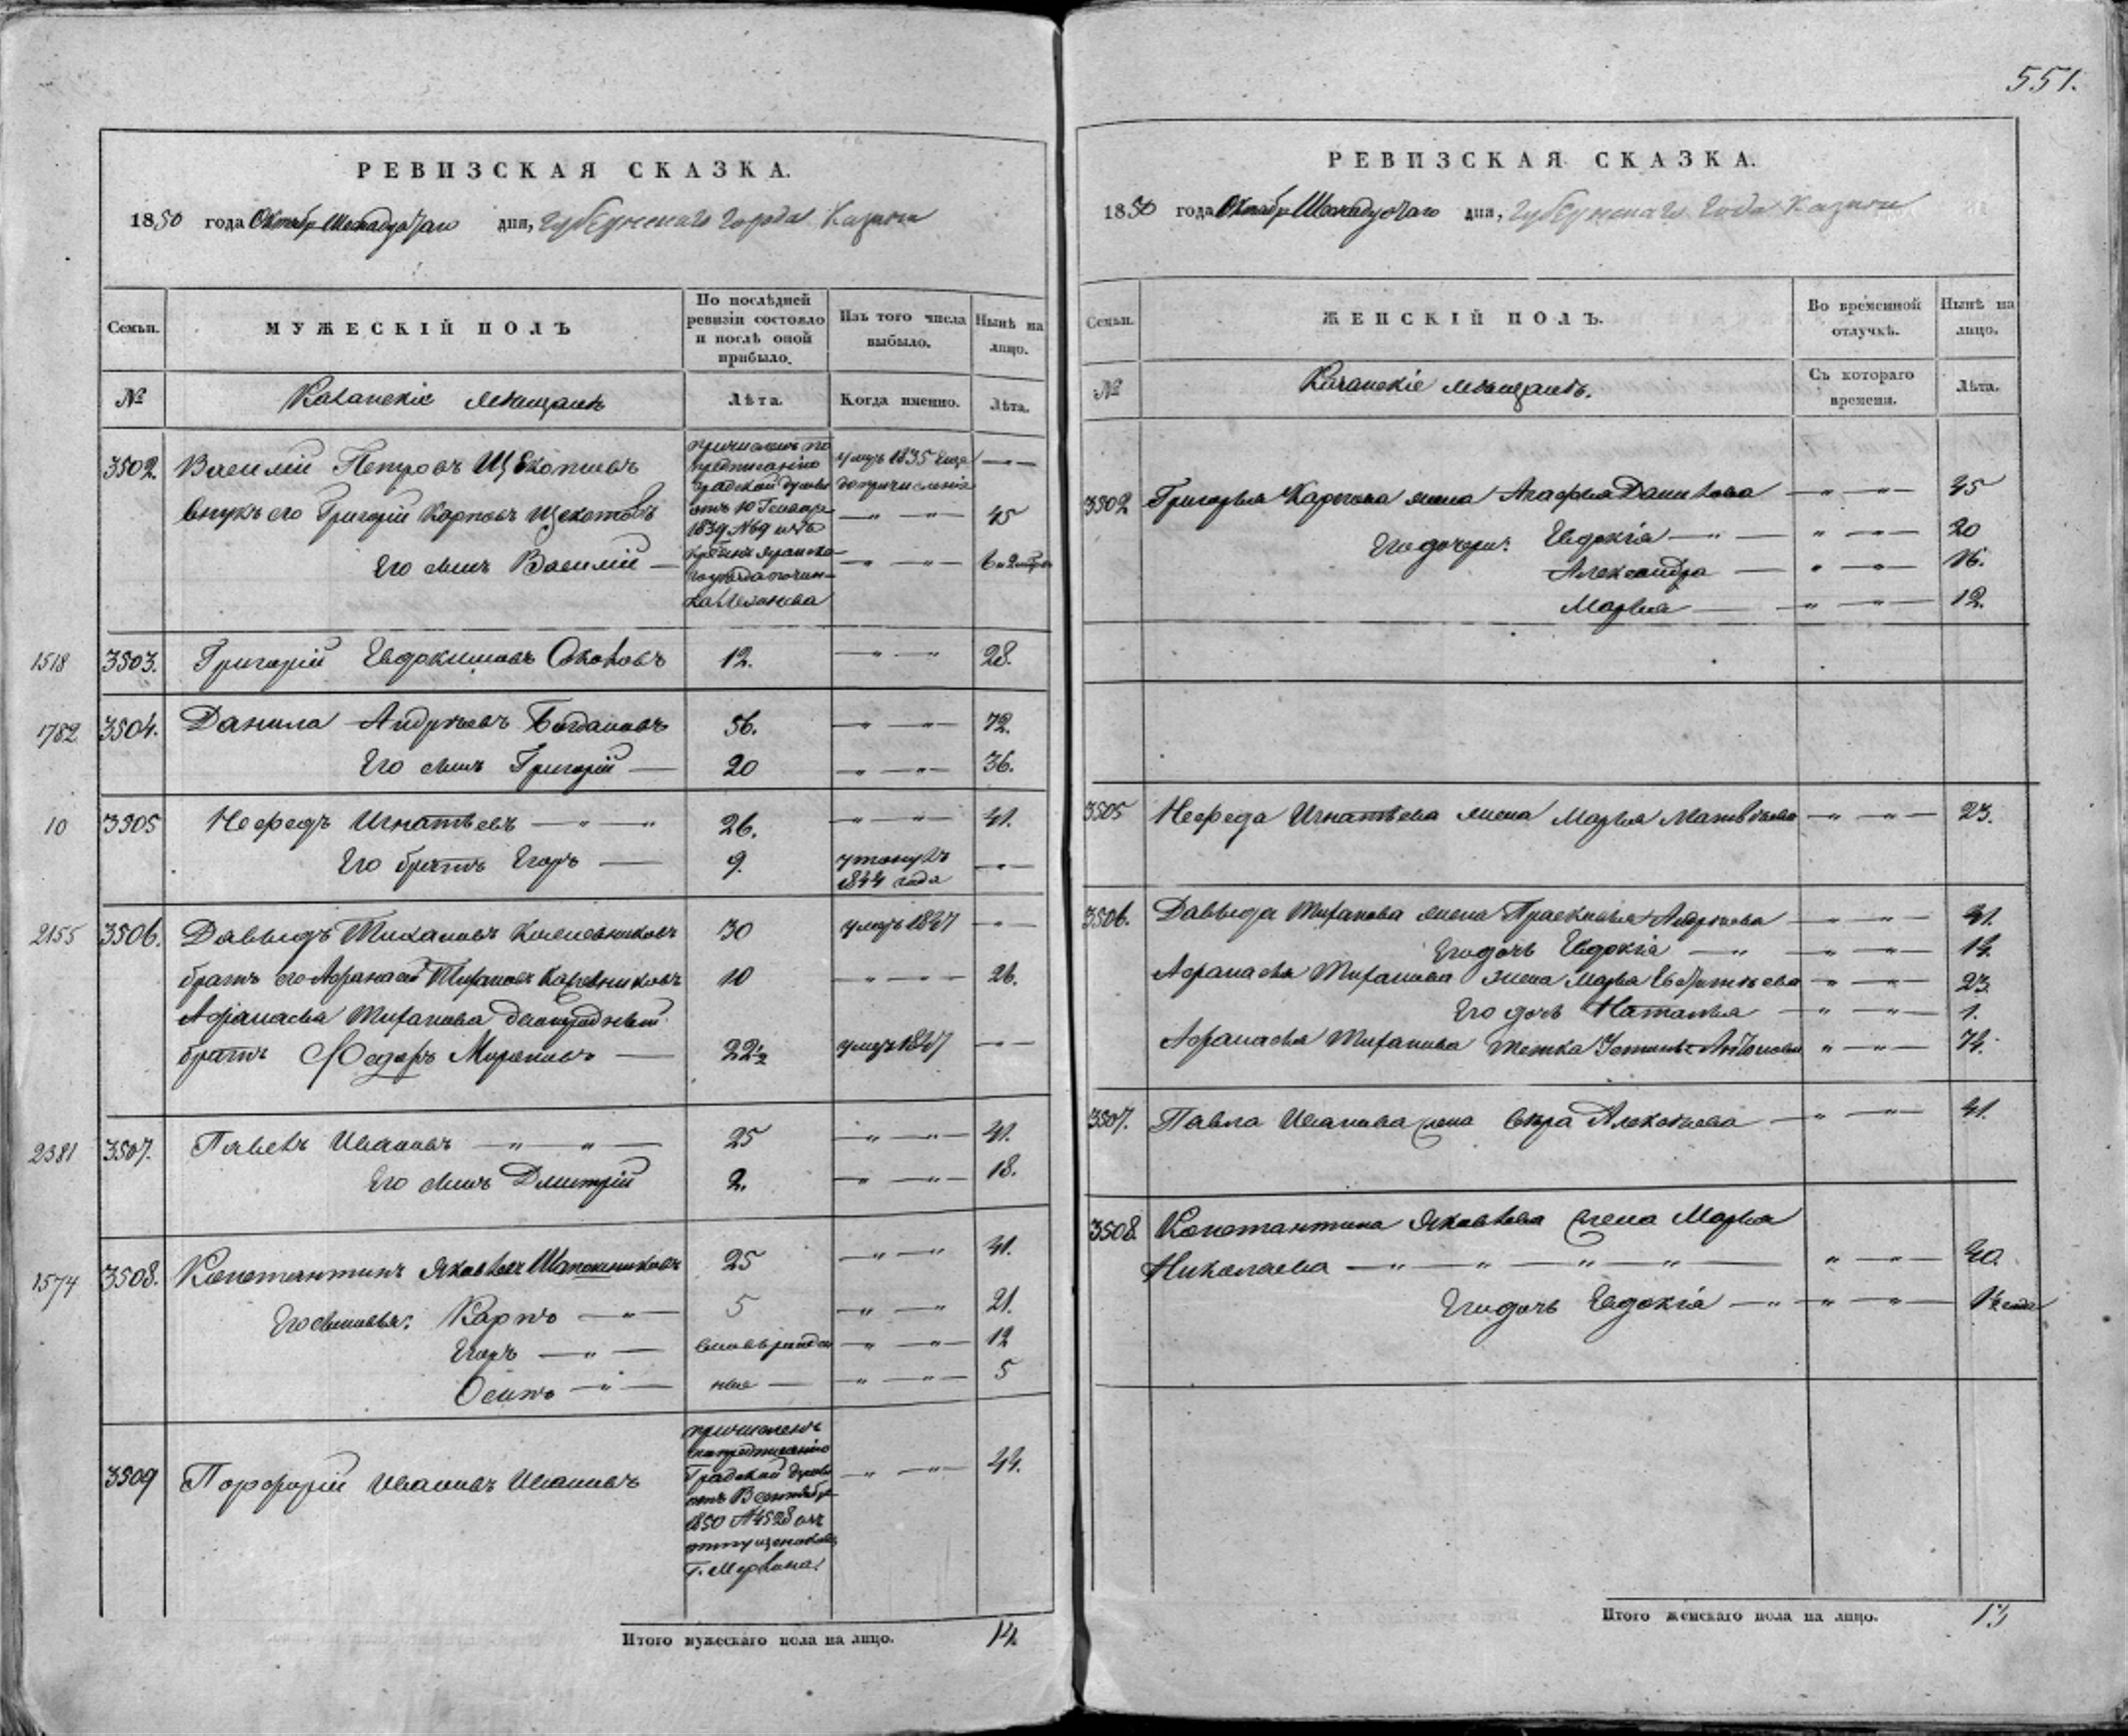 551.
РЕВИЗСКАЯ СКАЗКА.
1850 года Октябр Шестнадцатаго дня, Губернскаго города Казани
Семьи. МУЖЕСКІЙ ПОЛЪ По послѣдней ревизіи состояло и послѣ оной прибыло. Изъ того числа выбыло. Нынѣ на лицо.
№ Казанскіе мѣщанѣ Лѣта. Когда именно. Лѣта.
3502. Василій Петровъ Щекотовъ умеръ 1835 еще до причисленія
Внукъ его Григорій Карповъ Щекотовъ 45
Его сынъ Василій 6
причисленъ по
предписанію
градской думы
отъ 10 Генвар
1839 №69 изъ
1518 3503. Григорій Евдокимовъ Соколовъ 12. 28.
1782 3504. Данила Андреевъ Богдановъ 56. 72.
Его сынъ Григорій 20 36.
10 3505 Нефедъ Игнатьевъ 26. 41.
Его братъ Егоръ 9. утонулъ 1844 года
2155 3506. Давыдъ Тихановъ 30 умеръ 1847
братъ его Афанасій Тихановъ 10 26.
Афанасья Тиханова двоюродный
братъ Федоръ Мироновъ 22½ умеръ 1847
2381 3507. Павелъ Ивановъ 25 41.
Его сынъ Дмитрій 2. 18.
1574 3508. Константинъ Яковлевъ Шапошниковъ 25 41.
Его сыновья: Карпъ 5 21.
Егоръ вновь рожден 12
Осипъ ные 5
3509 Порфирій Ивановъ Ивановъ 44.
причисленъ
по предписанію
Градской думы
1850 №4528 изъ
Итого мужескаго пола на лицо. 14.
РЕВИЗСКАЯ СКАЗКА.
1850 года Октября Шестнадцатаго дня, Губернскаго Года Казани
Семьи. ЖЕНСКІЙ ПОЛЪ. Во временной отлучкѣ. Нынѣ на лицо.
№ Казанскіе мѣщанѣ. Съ котораго времени. Лѣта.
3502 Григорья Карпова жена Агафья Данилова 45
Его дочери: Евдокія 20
Александра 16.
Марья 12.
3505 Нефеда Игнатьева жена Марья Матвѣева 23.
3506. Давыда Тиханова жена Прасковья Андреева 41.
Его дочь Евдокія 14.
Афанасья Тиханова жена Марья 23.
Его дочь Наталья 1.
Афанасья Тиханова тетка 74.
3507. Павла Иванова жена Вѣра Алексѣева 41.
3508. Константина Яковлева жена Марья
Николаева 40.
Его дочь Евдокія 1½ года
Итого женскаго пола на лицо. 13